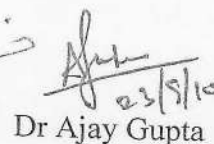 23/9/10
Dr Ajay Gupta